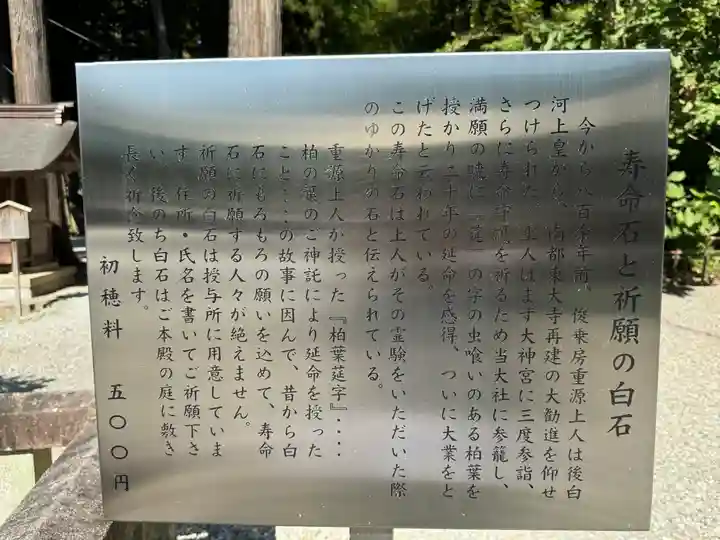 寿命石と祈願の白石
今から八百余年前、俊乗房重源上人は後白
河上皇から、南都東大寺再建の大勧進を仰せ
つけられた。上人はまず大神宮に三度参詣、
さらに寿命守護を祈るため当大社に参籠し、
満願の暁に「莚」の字の虫喰いのある柏葉を
授かり二十年の延命を感得、ついに大業をと
げたと云われている。
この寿命石は上人がその霊験をいただいた際
のゆかりの石と伝えられている。
重源上人が授った『柏葉莚字』‥‥
柏の莚のご神託により延命を授った
こと‥‥の故事に因んで、昔から白
石にもろもろの願いを込めて、寿命
石に祈願する人々が絶えません。
祈願の白石は授与所に用意していま
す。住所・氏名を書いてご祈願下さ
い。後のち白石はご本殿の庭に敷き
長く祈念致します。
初穂料 五〇〇円